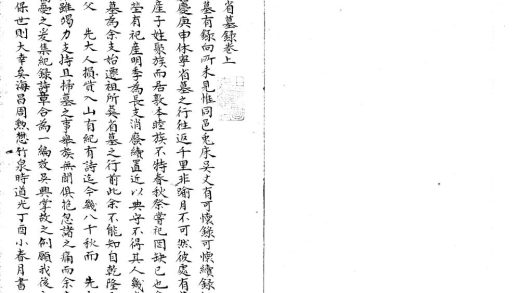 省墓錄卷上
墓有錄向所未見惟同邑兔床吳丈有可懷錄可懷續錄
慶庚申休寧省墓之行往返千里非逾月不可然彼處有
產子姓聚族而居敦本睦族不特春秋祭嘗祀罔缺已也
塋有祀產明季為長支消廢續置近以典守不得其人幾
墓為余支始遷祖所葬省墓之行前此余不能知自乾隆
父先大人損貲入山有紀有詩迄今幾八十秋而先
雖竭力支持且掃墓之事舉族無間俱抱忽諸之痛而余
憂之爰集紀錄詩章合為一編敢吳興掌故之例願我後
保世則大幸矣海昌周勲懋竹泉時道光丁酉小春月書